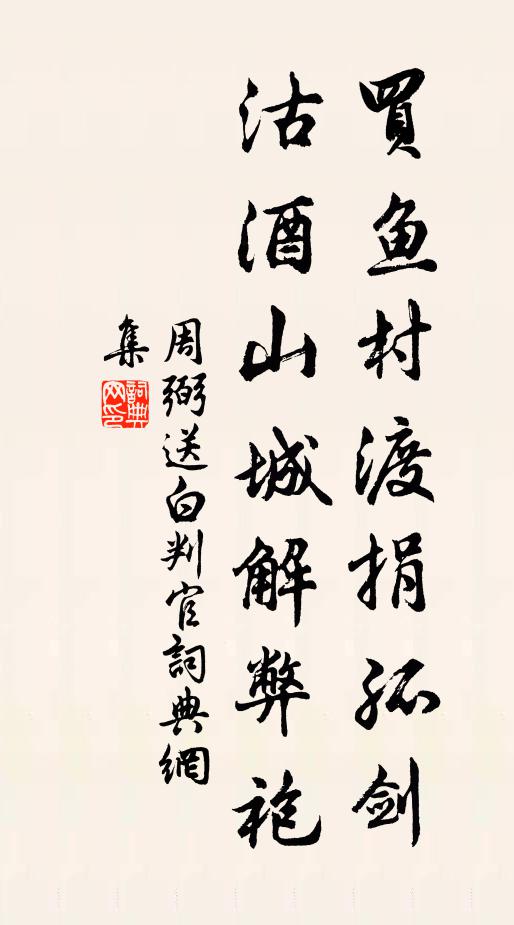 買鱼村渡捐孤剑
沽酒山城解弊袍
周弼送白判官詞典網
集
詞典网印